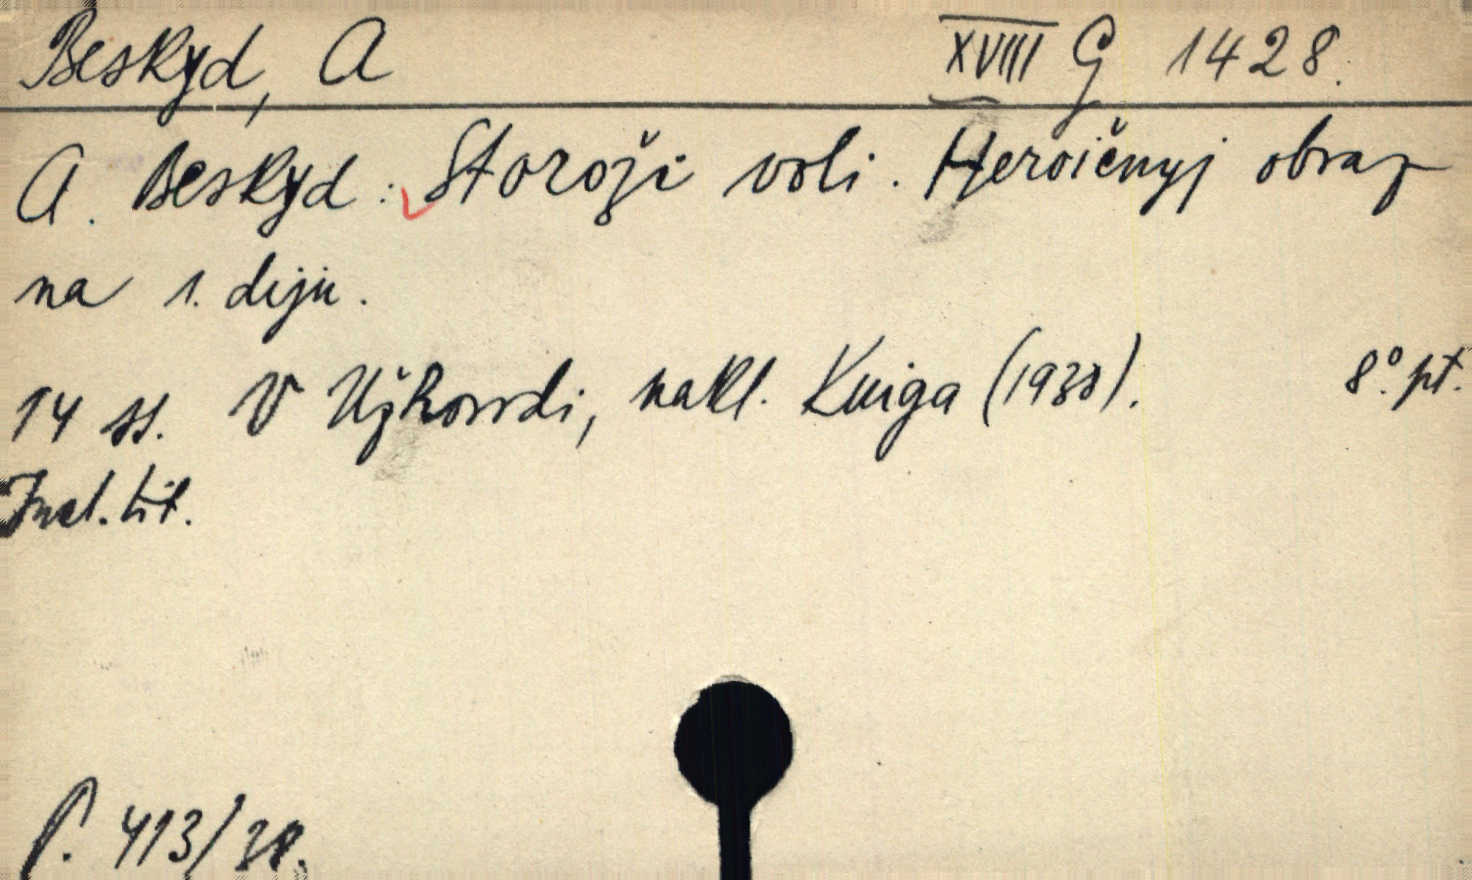 Beskyd, A XVIII G 1428.
A. Beskyd: Storoži voli. Heroičnyj obraz
na 1. diju.
14 ss. V Užhorodi, nakl. Kniga (1938). 8° pt.
Incl. tit.
P. 413/38.